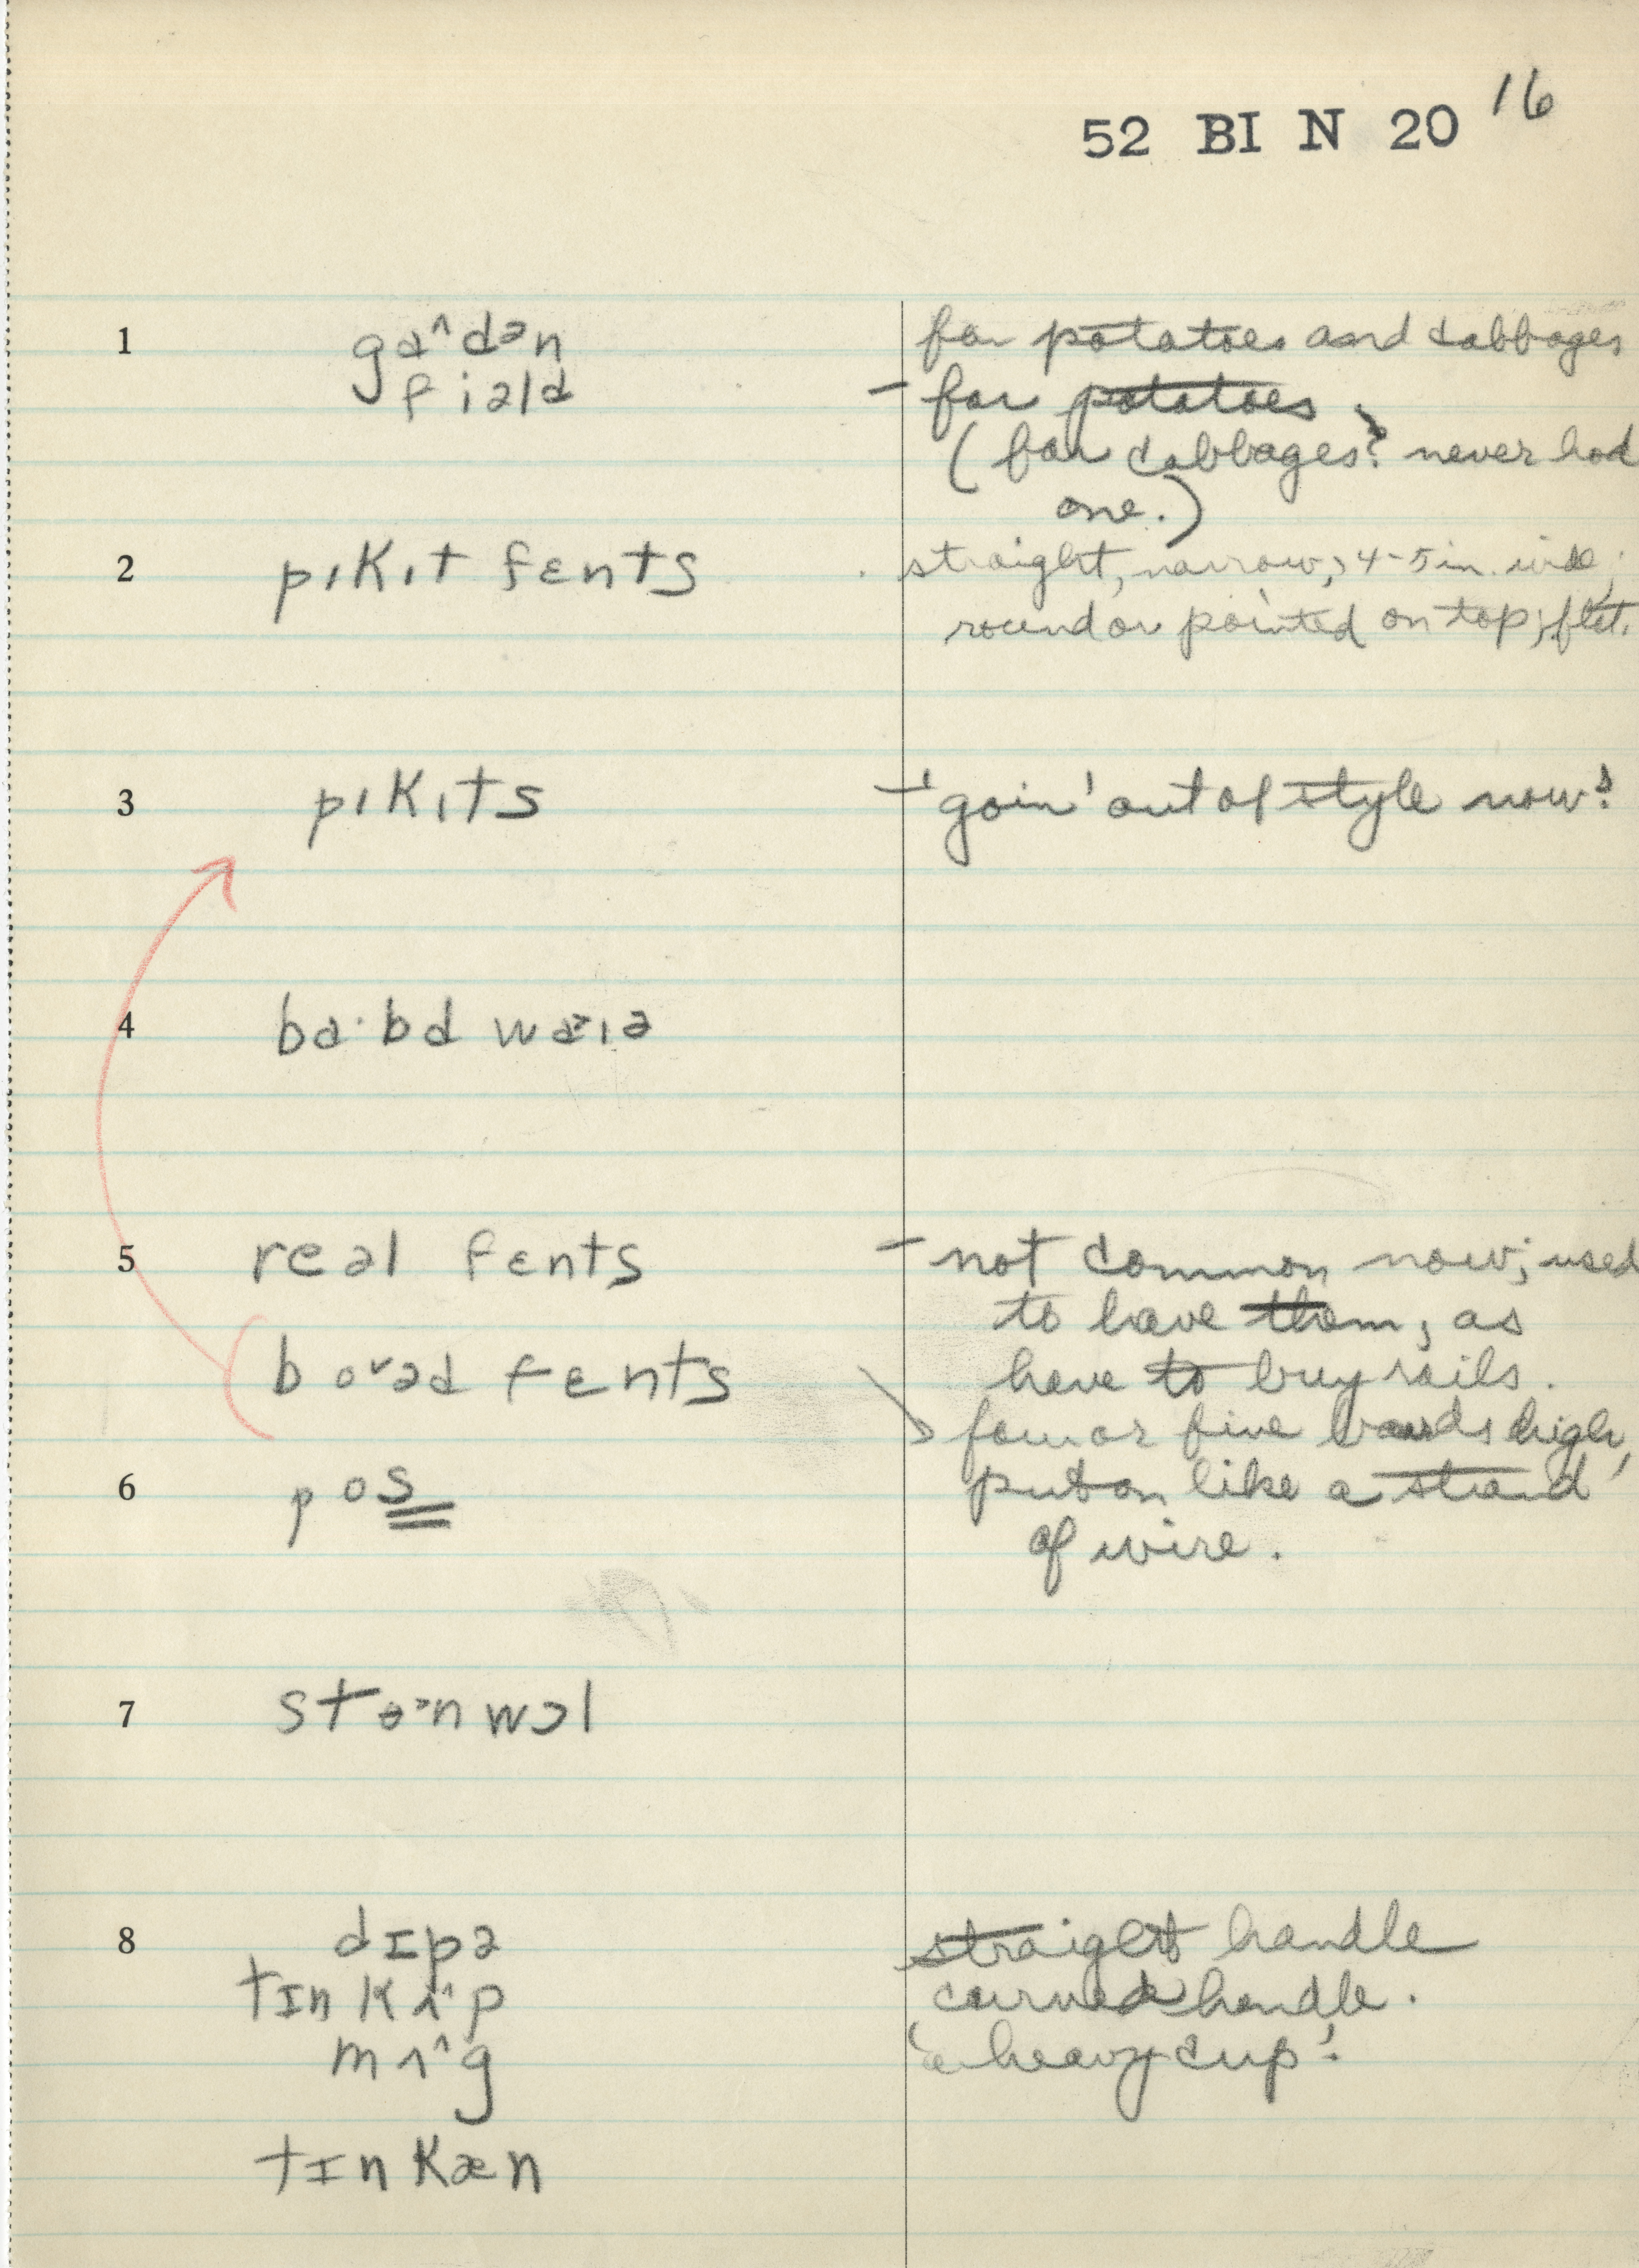 52 BI N 20 16
1 ga^dən for potatoes and cabbages
fiəld – for potatoes.
(for cabbages? never had
one.)
2 pıkıt fɛnts straight, narrow, 4-5 in. wide;
round or pointed on top; flat.
3 pıkıts – 'goin' out of style now'.
4 ba·bd waɪə
5 reəl fɛnts – not common now; used
to have them, as
have to buy rails.
boˇəd fɛnts four or five boards high,
6 pos put on like a strand
of wire.
7 stɵ>n wɔl
8 dɪpə straight handle
tɪn kʌ^p curved handle.
mʌ^g 'a heavy cup'.
tɪn kæn